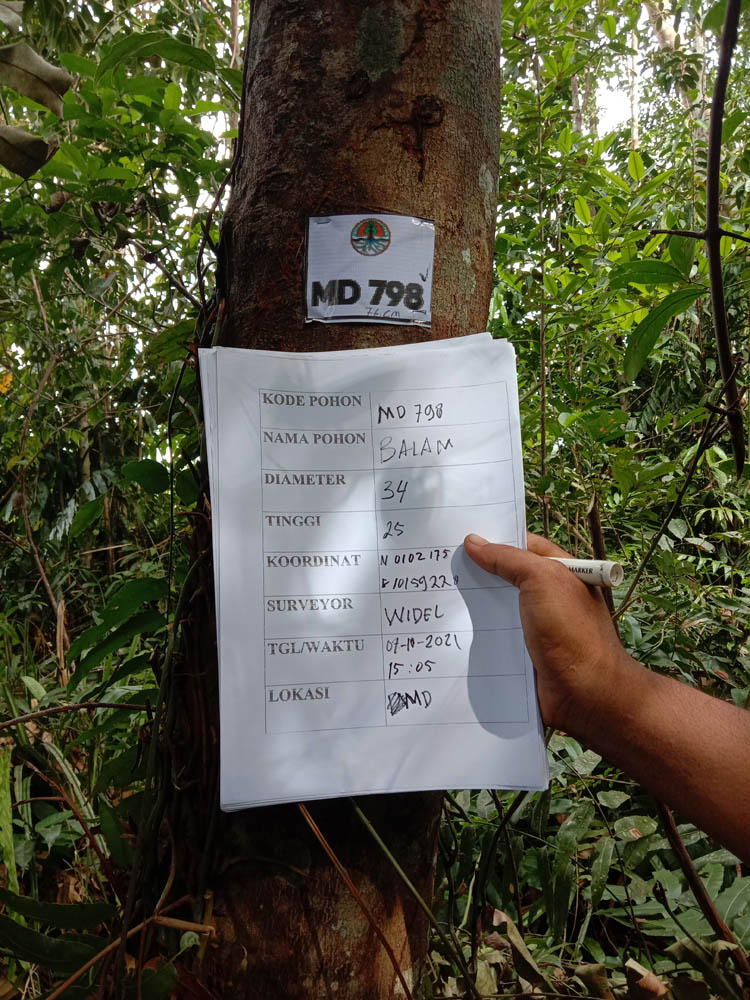 MD 798
76 cm
KODE POHON MD 798
NAMA POHON BALAM
DIAMETER 34
TINGGI 25
KOORDINAT N 0102175
E 1015922
SURVEYOR WIDEL
TGL/WAKTU 07-10-2021
15:05
LOKASI MD
MARKER